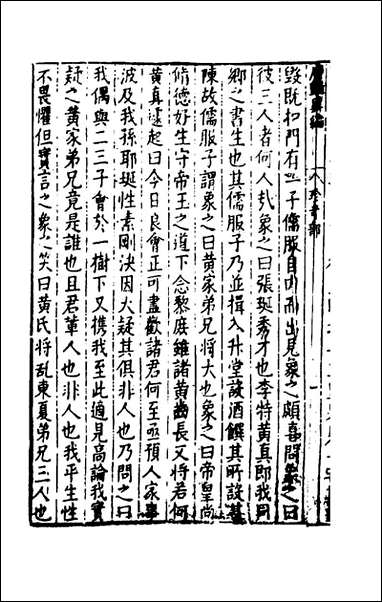 毀既扣門有一子儒服自內而出見象之頗喜問象之曰
彼三人者何人哉象之曰張斑秀才也李特黃真即我同
鄉之書生也其儒服子乃並揖入升堂設酒饌其所設甚
陳故儒服子謂象之曰黃家弟兄將大也象之曰帝皇尚
脩德好生守帝王之道下念黎庶雖諸黃齒長又將若何
黃真遽起曰今日良會正可盡歡諸君何至亟預人家事
波及我孫耶斑性素剛決因大疑其俱非人也乃問之曰
我偶與二三子會於一樹下又携我至此適見高論我實
疑之黃家弟兄竟是誰也且君輩人也非人也我平生性
不畏懼但實言之象之笑曰黃氏將乱東夏弟兄三人也